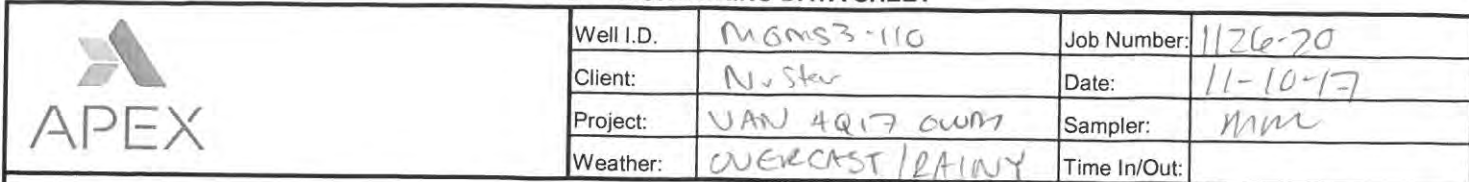 APEX
Well I.D. MGMS3-110 Job Number: 1126-20
Client: NuStar Date: 11-10-17
Project: VAN 4Q17 GWM Sampler: MM
Weather: OVERCAST / RAINY Time In/Out: